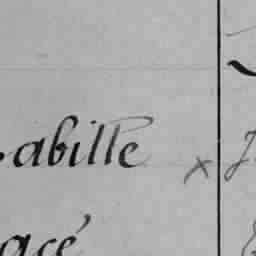 abille x
acé